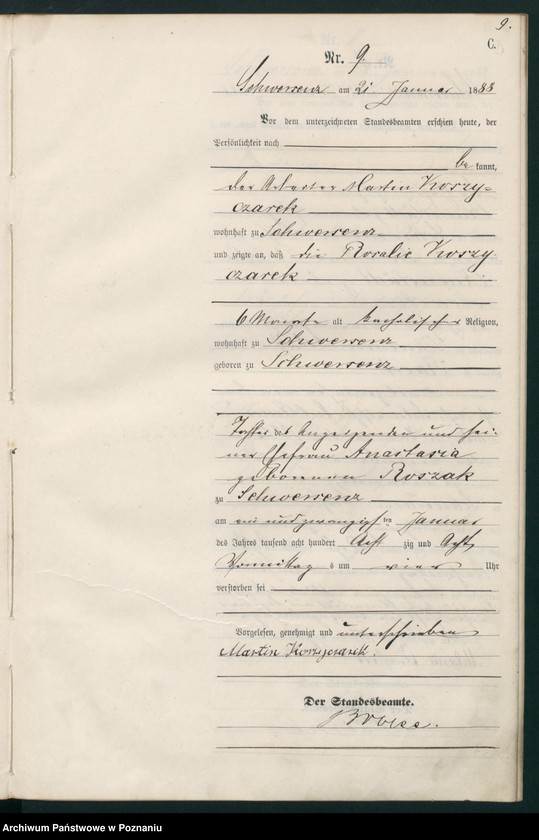 9.
C.
Nr. 9.
Schwersenz am 21 Januar 1888
Vor dem unterzeichneten Standesbeamten erschien heute, der
Persönlichkeit nach
bekannt,
der Arbeiter Martin Koszy=
czarek
wohnhaft zu Schwersenz
und zeigte an, daß die Rosalie Koszy
czarek
6 Monate alt katholischer Religion,
wohnhaft zu Schwersenz
geboren zu Schwersenz
Tochter des Anzeigenden und sei-
ner Ehefrau Anastasia
geborenen Roszak
zu Schwersenz
am ein und zwanzigsten Januar
des Jahres tausend acht hundert Acht zig und Acht
Vormittag s um vier Uhr
verstorben sei
Vorgelesen, genehmigt und unterschrieben
Martin Koszyczarek.
Der Standesbeamte.
Archiwum Państwowe w Poznaniu